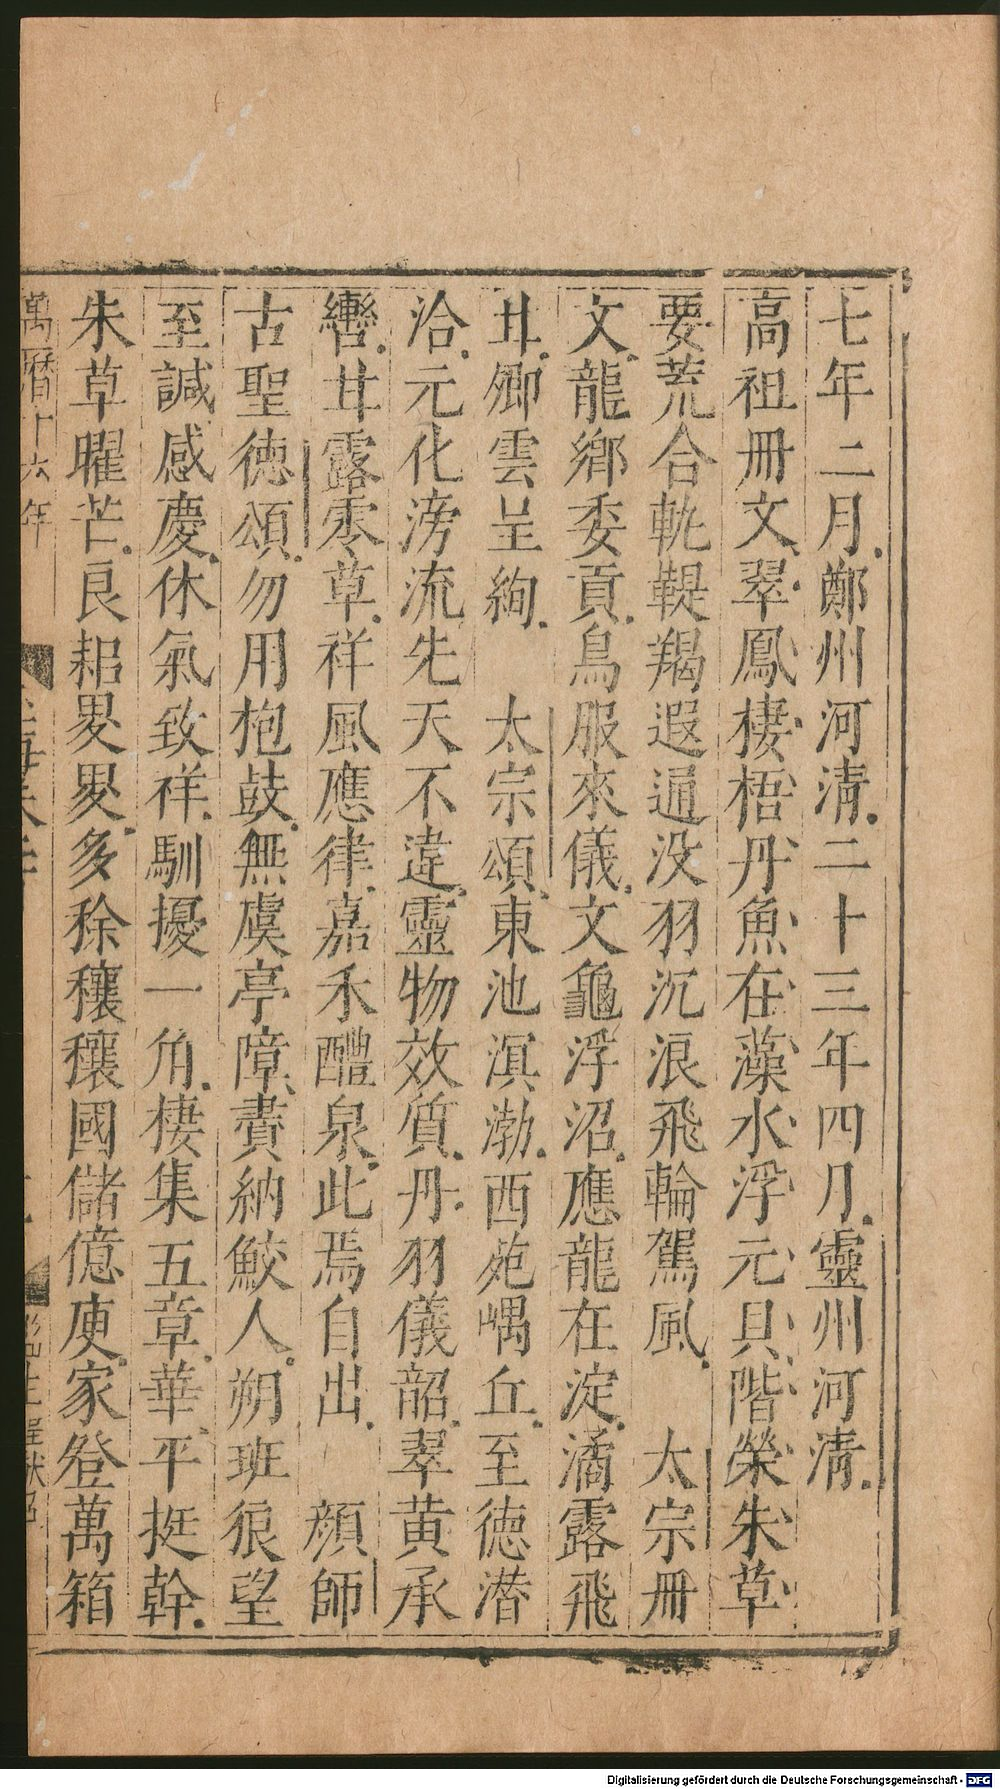 七年二月鄭州河清二十三年四月靈州河清
高祖冊文翠鳳棲梧丹魚在藻水浮元貝階榮朱草
要荒合軌鞮羯遐通没羽沉浪飛輪駕風 太宗冊
文龍鄉委貢鳥服來儀文龜浮沼應龍在淀潏露飛
甘卿雲呈絢 太宗頌東池溟渤西苑嵎丘至德潜
洽元化滂流先天不違靈物效質丹羽儀韶翠黄承
轡甘露零草祥風應律嘉禾醴泉此焉自出 顔師
古聖德頌勿用抱鼓無虞亭障賮納鮫人朔班狼望
至諴感慶休氣致祥馴擾一角棲集五章華平挺幹
朱草曜芒良耜畟畟多稌穰穰國儲億庾家登萬箱
萬曆十六年